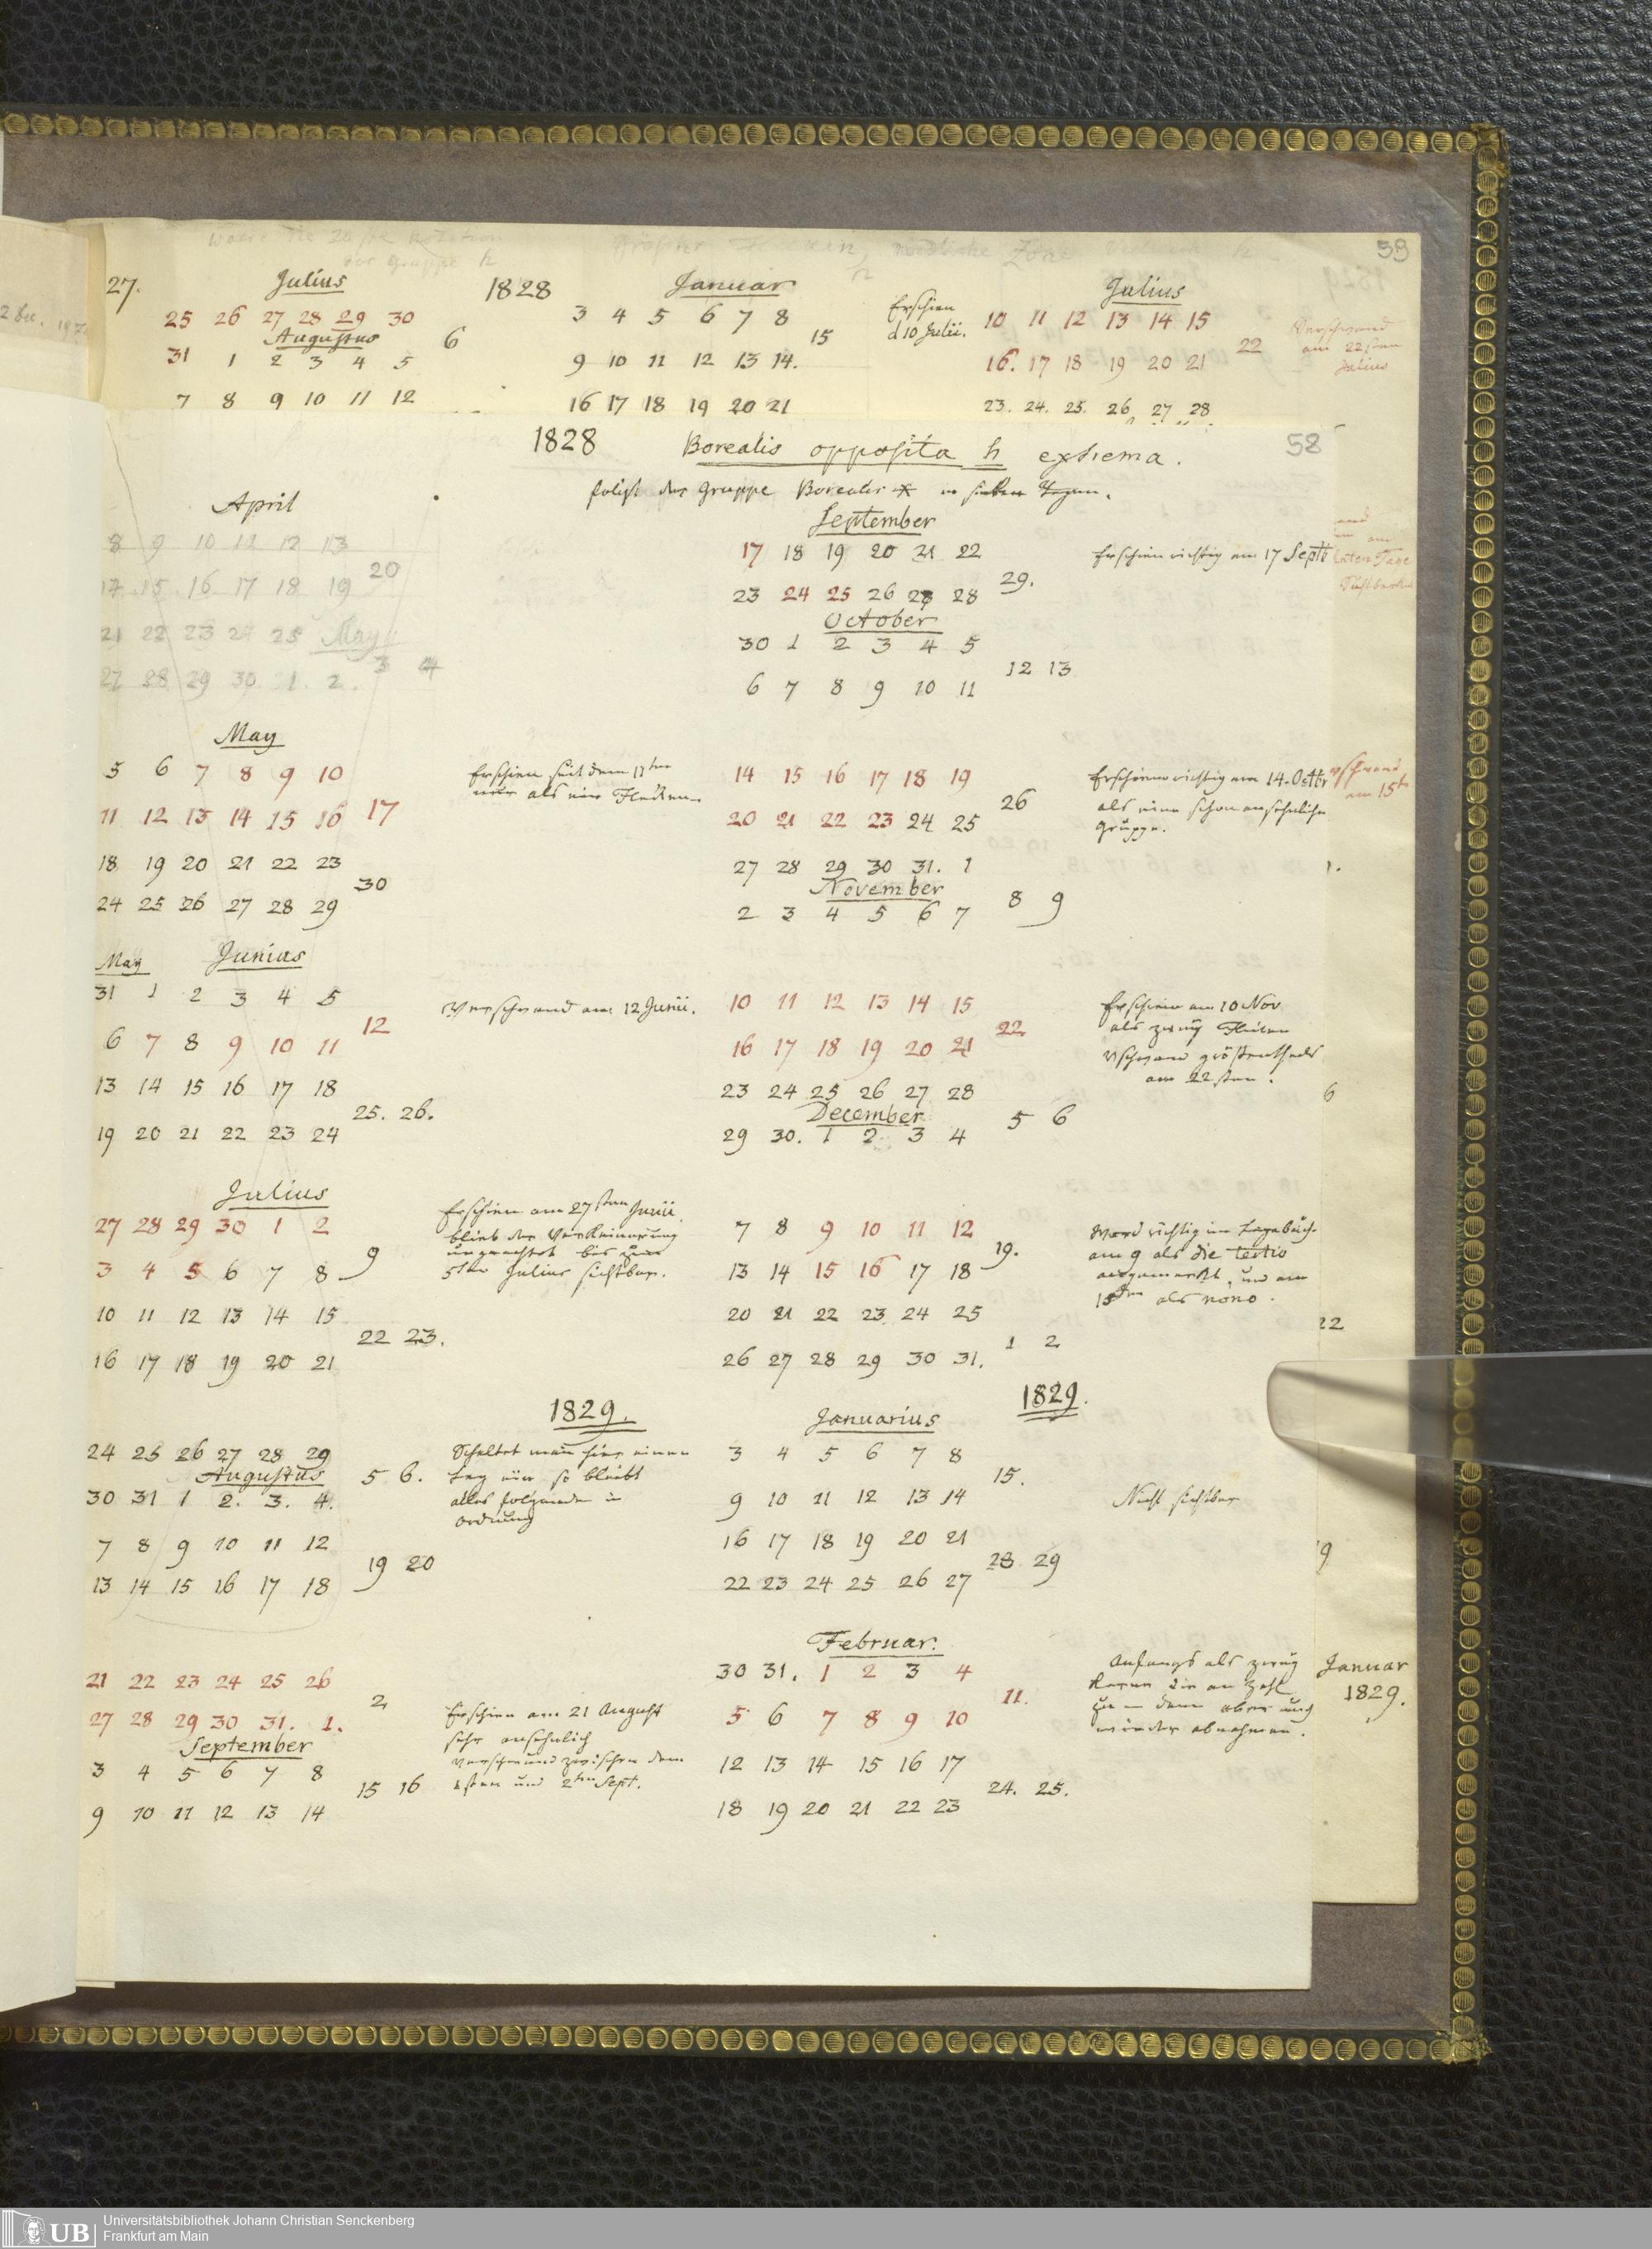 59
27. Julius 1828 Januar Julius
25 26 27 28 29 30
Augustus
31 1 2 3 4 5
6
7 8 9 10 11 12
3 4 5 6 7 8
15
9 10 11 12 13 14.
16 17 18 19 20 21
Erschien
d 10 Julii.
10 11 12 13 14 15
22
16. 17 18 19 20 21
23. 24. 25. 26. 27 28
Verschwand
am 22sten
Julius
58
1828 Borealis opposita h extrema.
folgt der Gruppe Borealis * in sieben Tagen.
April
8 9 10 11 12 13
20
14 15 16 17 18 19
21 22 23 24 25 May
3 4
27 28 29 30 1. 2.
May
5 6 7 8 9 10
17
11 12 13 14 15 16
18 19 20 21 22 23
30
24 25 26 27 28 29
Erschien seit dem 11ten
nur als ein Flecken
May Junius
31 1 2 3 4 5
12
6 7 8 9 10 11
13 14 15 16 17 18
25. 26.
19 20 21 22 23 24
Verschwand am 12 Junii.
Julius
27 28 29 30 1 2
9
3 4 5 6 7 8
10 11 12 13 14 15
22 23.
16 17 18 19 20 21
Erschien am 27sten Junii
blieb der Verkleinerung
ungeachtet bis zum
5ten Julius sichtbar.
1829.
24 25 26 27 28 29
Augustus
5 6.
30 31 1 2. 3. 4.
7 8 9 10 11 12
19 20
13 14 15 16 17 18
Schaltet man hier einen
Tag ein so bleibt
alles folgende in
Ordnung
21 22 23 24 25 26
2
27 28 29 30 31. 1.
September
3 4 5 6 7 8
15 16
9 10 11 12 13 14
Erschien am 21 August
sehr ansehnlich
verschwund zwischen dem
1sten und 2ten Sept.
September
17 18 19 20 21 22
29.
23 24 25 26 27 28
October
30 1 2 3 4 5
12 13
6 7 8 9 10 11
Erschien richtig am 17 Septb
14 15 16 17 18 19
26
20 21 22 23 24 25
27 28 29 30 31. 1
November
8 9
2 3 4 5 6 7
Erschien richtig am 14. Octbr
als eine schon ansehnliche
Gruppe.
10 11 12 13 14 15
22
16 17 18 19 20 21
23 24 25 26 27 28
December
5 6
29 30. 1 2 3 4
Erschien am 10 Nov
als zwey Flecken
vschwand größtentheils
am 22sten.
7 8 9 10 11 12
19.
13 14 15 16 17 18
20 21 22 23 24 25
1 2
26 27 28 29 30 31.
Ward richtig im Tagebuch
am 9 als die tertio
angemerkt, und am
15ten als nono.
1829.
Januarius
3 4 5 6 7 8
15.
9 10 11 12 13 14
16 17 18 19 20 21
28 29
22 23 24 25 26 27
Nicht sichtbar
Februar.
30 31. 1 2 3 4
11.
5 6 7 8 9 10
12 13 14 15 16 17
24. 25.
18 19 20 21 22 23
Anfangs als zwey
Kerne die an Zahl
zu dann aber auch
wieder abnahmen.
vschwand
am 15t
6
22
19
Januar
1829.
UB Universitätsbibliothek Johann Christian Senckenberg
Frankfurt am Main